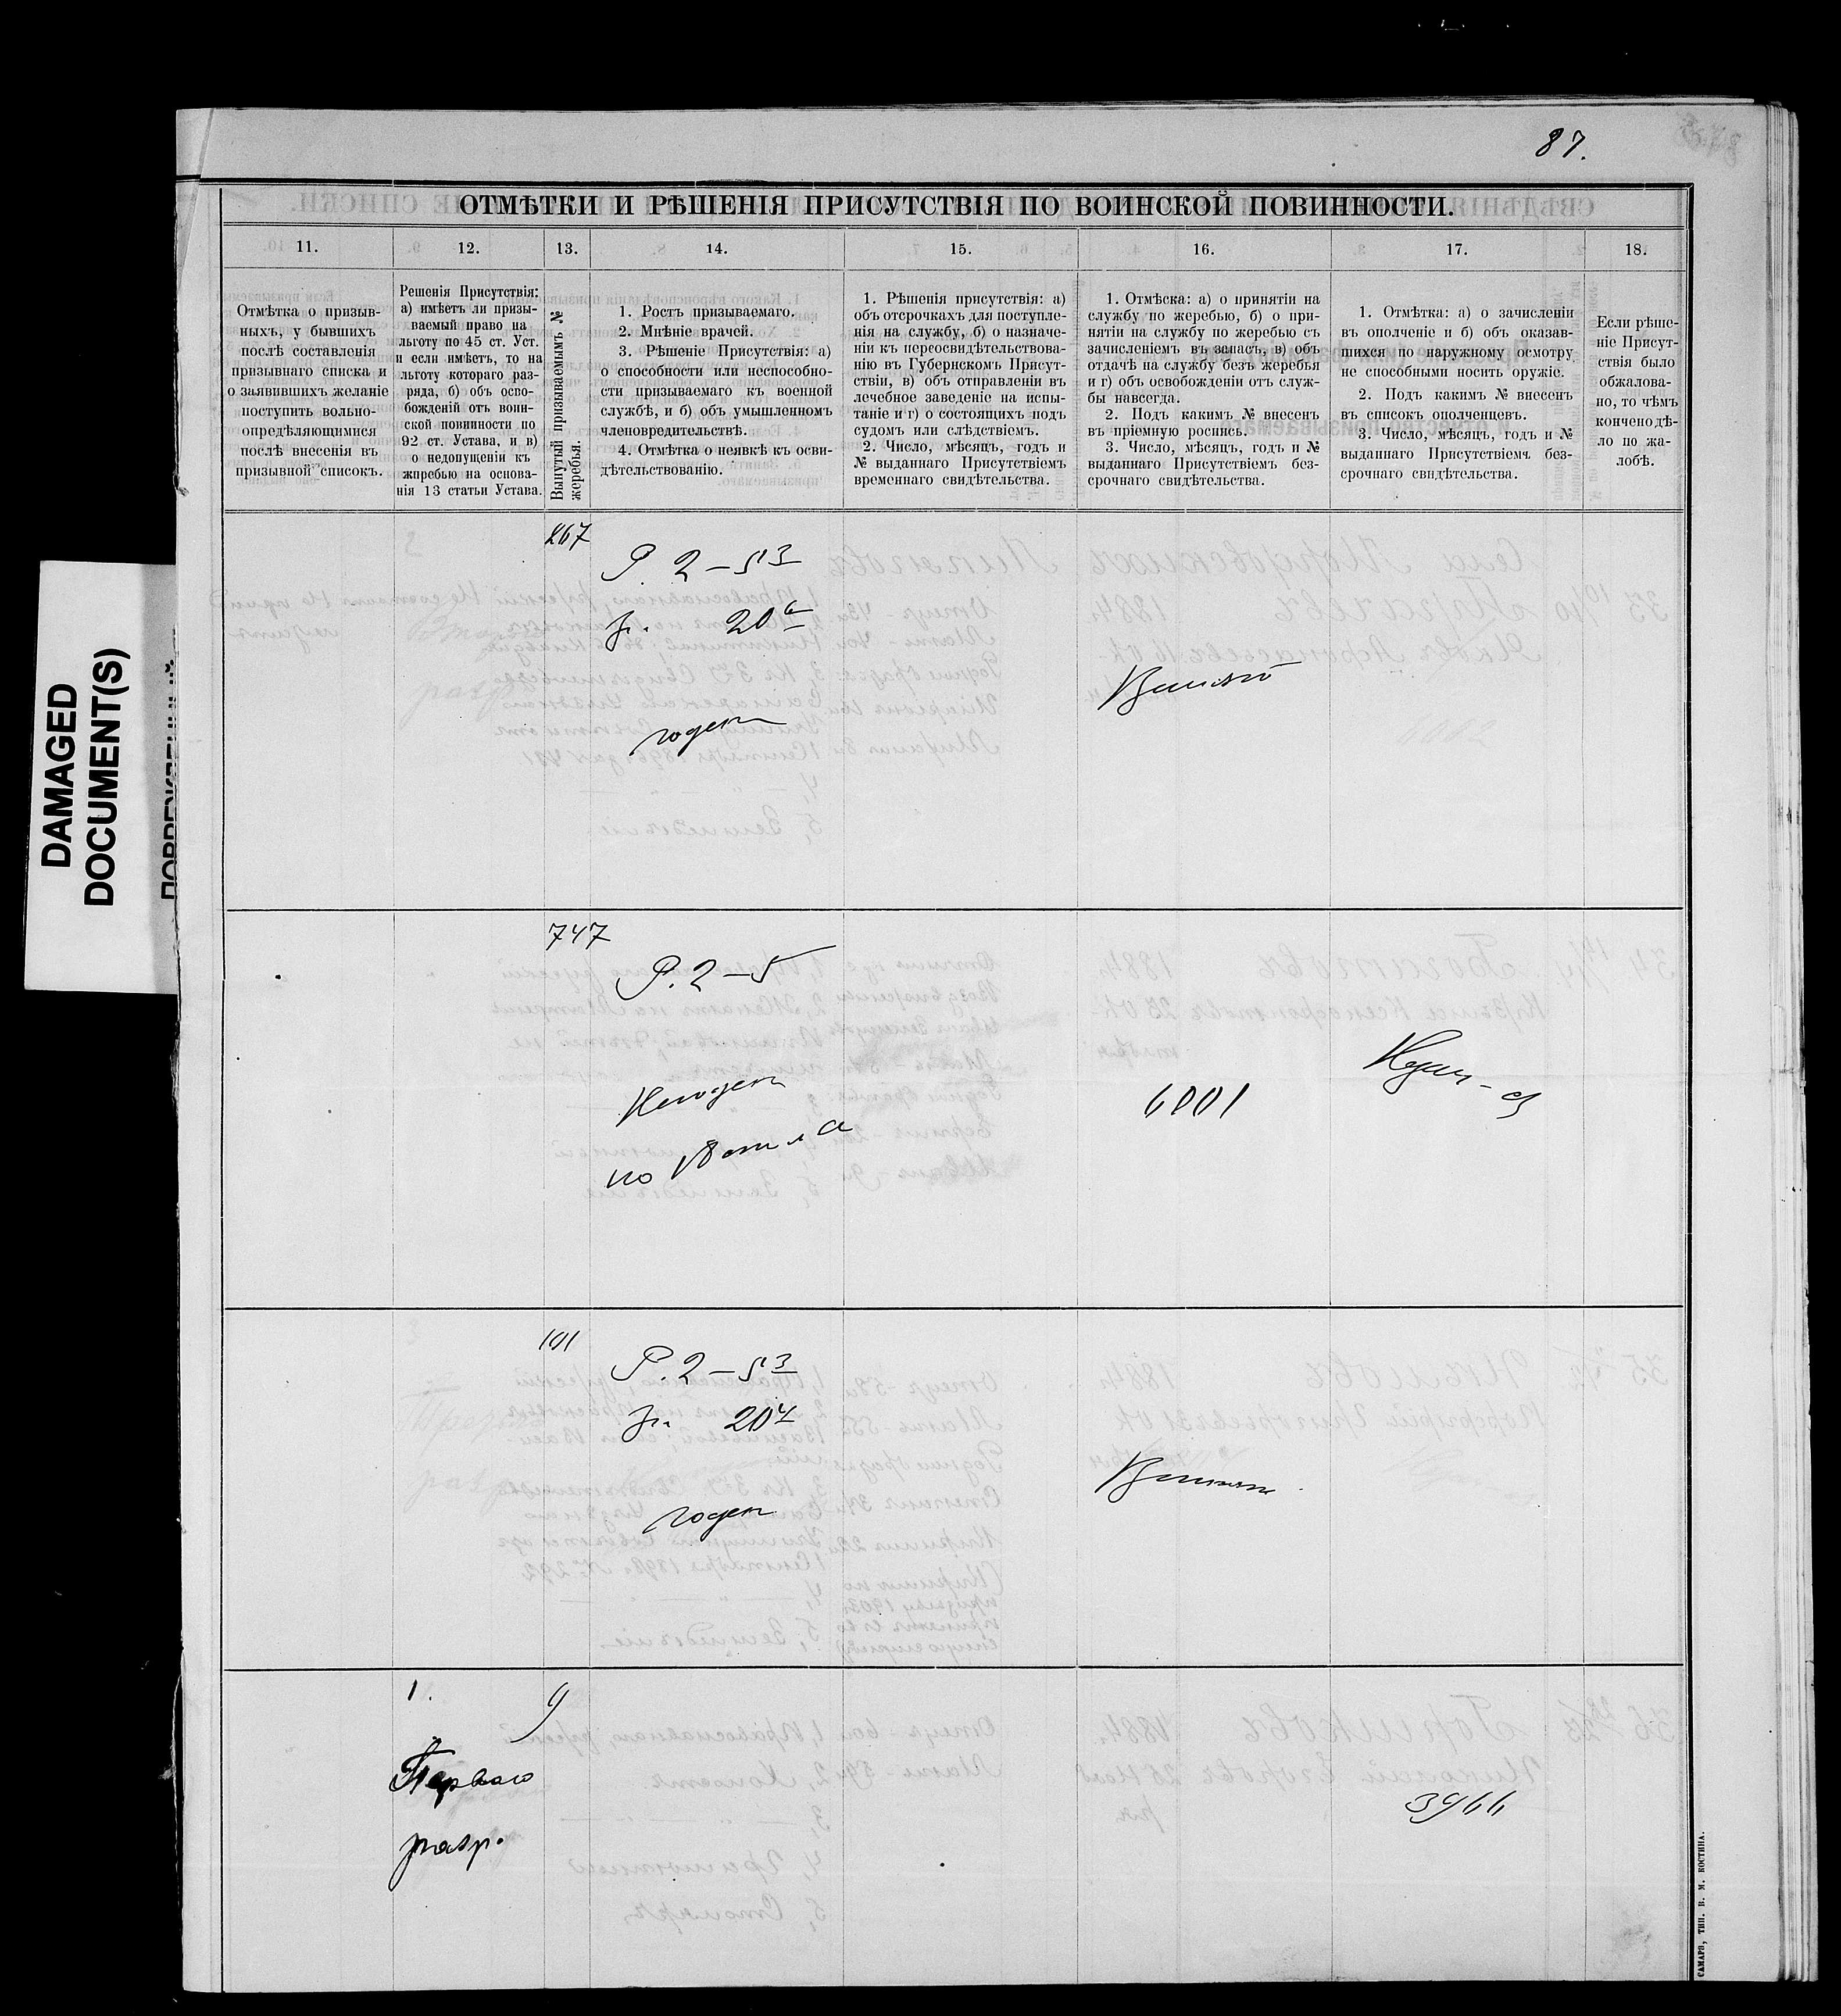 87.
ОТМѢТКИ И РѢШЕНІЯ ПРИСУТСТВІЯ ПО ВОИНСКОЙ ПОВИННОСТИ.
11. 12. 13. 14. 15. 16. 17. 18.
Отмѣтка о призыв-
ныхъ, у бывшихъ
послѣ составленія
призывнаго списка и
о заявившихъ желаніе
поступить вольно-
опредѣляющимися
послѣ внесенія въ
призывной списокъ.
Решенія Присутствія:
а) имѣетъ ли призы-
ваемый право на
льготу по 45 ст. Уст.
и если имѣетъ, то на
льготу котораго раз-
ряда, б) объ осво-
божденій отъ воин-
ской повинности по
92 ст. Устава, и в)
о недопущеніи къ
жеребью на основа-
нія 13 статьи Устава.
Вынутый призываемымъ №
жеребья.
1. Ростъ призываемаго.
2. Мнѣніе врачей.
3. Рѣшеніе Присутствія: а)
о способности или неспособно-
сти призываемаго къ военной
службѣ, и б) объ умышленномъ
членовредительствѣ.
4. Отмѣтка о неявкѣ къ осви-
дѣтельствованію.
1. Рѣшенія присутствія: а)
объ отсрочкахъ для поступле-
нія на службу, б) о назначе-
ніи къ переосвидѣтельствова-
нію въ Губернскомъ Присут-
ствіи, в) объ отправленіи въ
лечебное заведеніе на испы-
таніе и г) о состоящихъ подъ
судомъ или слѣдствіемъ.
2. Число, мѣсяцъ, годъ и
№ выданнаго Присутствіемъ
временнаго свидѣтельства.
1. Отмѣска: а) о принятіи на
службу по жеребью, б) о при-
нятіи на службу по жеребью съ
зачисленіемъ въ запасъ, в) объ
отдачѣ на службу безъ жеребья
и г) объ освобожденіи отъ служ-
бы навсегда.
2. Подъ какимъ № внесенъ
въ пріемную роспись.
3. Число, мѣсяцъ, годъ и №
выданнаго Присутствіемъ без-
срочнаго свидѣтельства.
1. Отмѣтка: а) о зачисленіи
въ ополченіе и б) объ оказав-
шихся по наружному осмотру
не способными носить оружіе.
2. Подъ какимъ № внесенъ
въ списокъ ополченцевъ.
3. Число, мѣсяцъ, годъ и №
выданнаго Присутствіемъ без-
срочнаго свидѣтельства.
Если рѣше-
ніе Присут-
ствія было
обжалова-
но, то чѣмъ
кончено дѣ-
ло по жа-
лобѣ.
267
Р. 2–5 3
20 6
годен
747
Р. 2–5
Негоден
по
6001
101
Р. 2–5 3
20 4
годен
1.
9
Перваго
разр.
3966
САМАРА, ТИП. В. М. КОСТИНА.
DAMAGED
DOCUMENT(S)